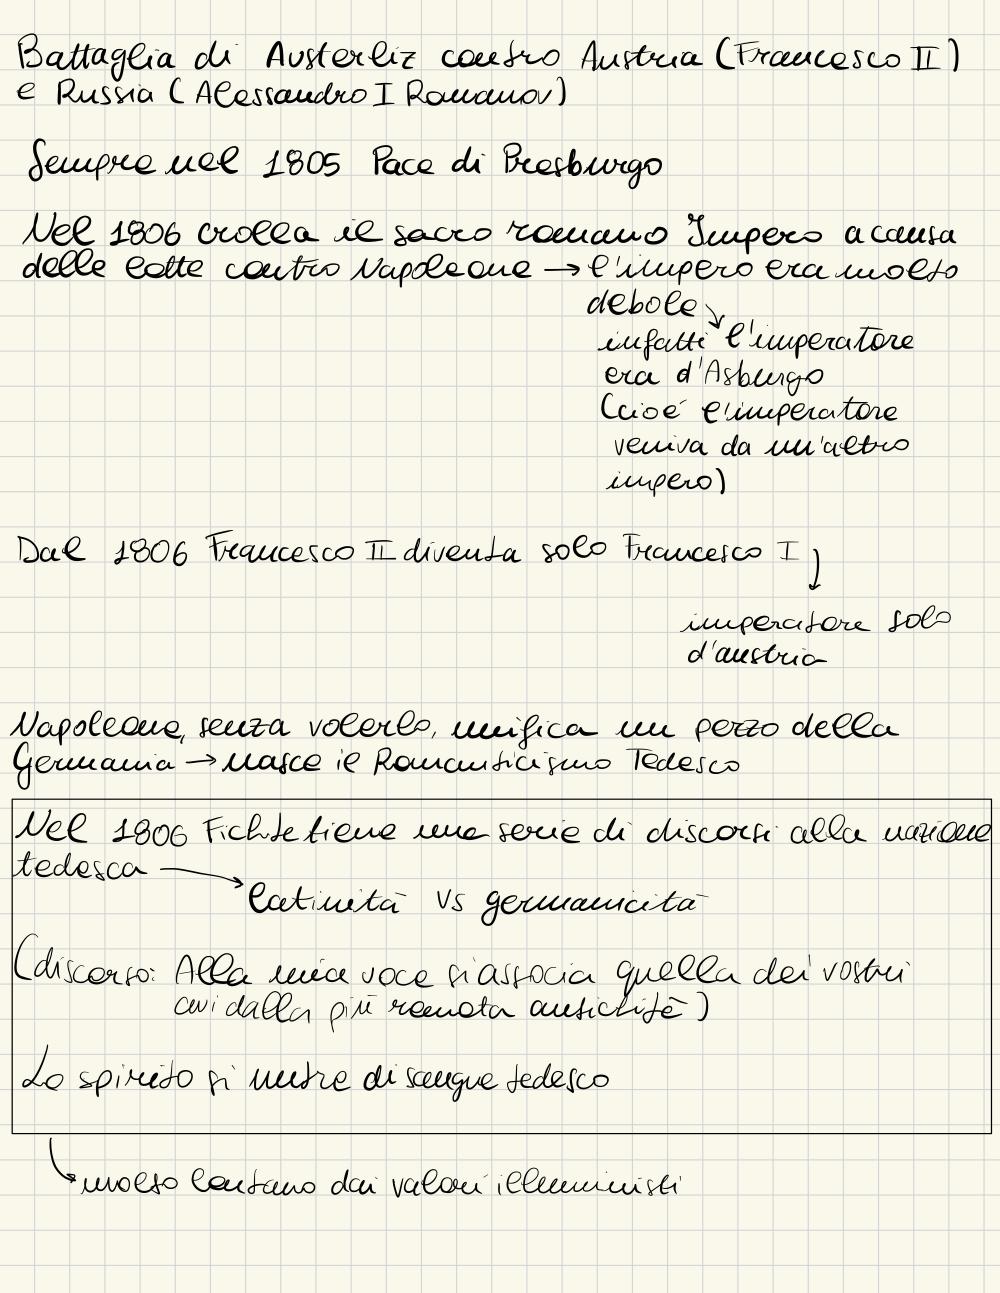 Battaglia di Austerliz contro Austria (Francesco II)
e Russia (Alessandro I Romanov)
Sempre nel 1805 Pace di Presburgo
Nel 1806 crolla il sacro romano Impero a causa
delle lotte contro Napoleone → l'impero era molto
debole ↘
infatti l'imperatore
era d'Asburgo
(cioé l'imperatore
veniva da un'altro
impero)
Dal 1806 Francesco II diventa solo Francesco I
imperatore solo
d'austria
Napoleone, senza volerlo, unifica un pezzo della
Germania → nasce il Romanticismo Tedesco
Nel 1806 Fichte tiene una serie di discorsi alla nazione
tedesca →
latinità vs germanicità
(discorso: Alla mia voce si associa quella dei vostri
avi dalla più remota antichità)
Lo spirito si nutre di sangue tedesco
molto lontano dai valori illuministi